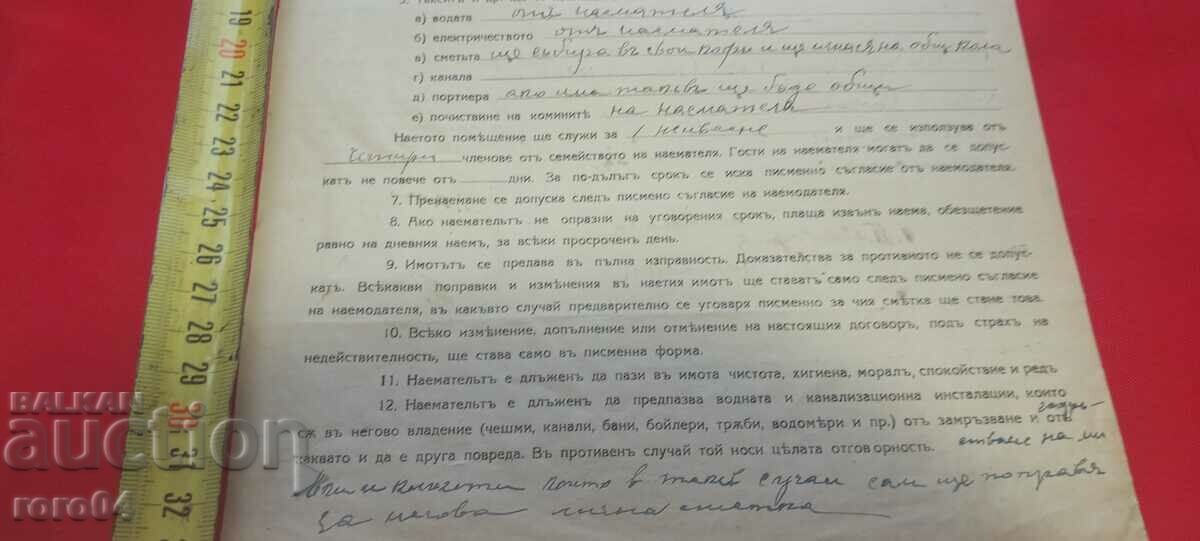 а) водата отъ наемателя
б) електричеството отъ наемателя
в) сметьта ще събира въ свои кофи и ще изнася на общ. кола
г) канала
д) портиера ако има такъв ще бъде общ
е) почистване на комините на наемателя
Наетото помѣщение ще служи за живѣене и ще се използува отъ
Четири членове отъ семейството на наемателя. Гости на наемателя могатъ да се допус-
катъ не повече отъ дни. За по-дълъгъ срокъ се иска писменно съгласие отъ наемодателя.
7. Пренаемане се допуска следъ писмено съгласие на наемодателя.
8. Ако наемательтъ не опразни на уговорения срокъ, плаща извънъ наема, обезщетение
равно на дневния наемъ, за всѣки просроченъ день.
9. Имотътъ се предава въ пълна изправность. Доказателства за противното не се допус-
катъ. Всѣкакви поправки и измѣнения въ наетия имотъ ще ставатъ само следъ писмено съгласие
на наемодателя, въ какъвто случай предварително се уговаря писменно за чия смѣтка ще стане това.
10. Всѣко измѣнение, допълнение или отмѣнение на настоящия договоръ, подъ страхъ на
недействителность, ще става само въ писменна форма.
11. Наемательтъ е длъженъ да пази въ имота чистота, хигиена, моралъ, спокойствие и редъ
12. Наемательтъ е длъженъ да предпазва водната и канализационна инсталации, които
сѫ въ негово владение (чешми, канали, бани, бойлери, трѫби, водомѣри и пр.) от замръзване и отъ
каквато и да е друга повреда. Въ противенъ случай той носи цѣлата отговорность.
които в такъв случай сам ще поправя
за негова лична сметка
19 20 21 22 23 24 25 26 27 28 29 30 31 32
BALKAN
auction
roro04